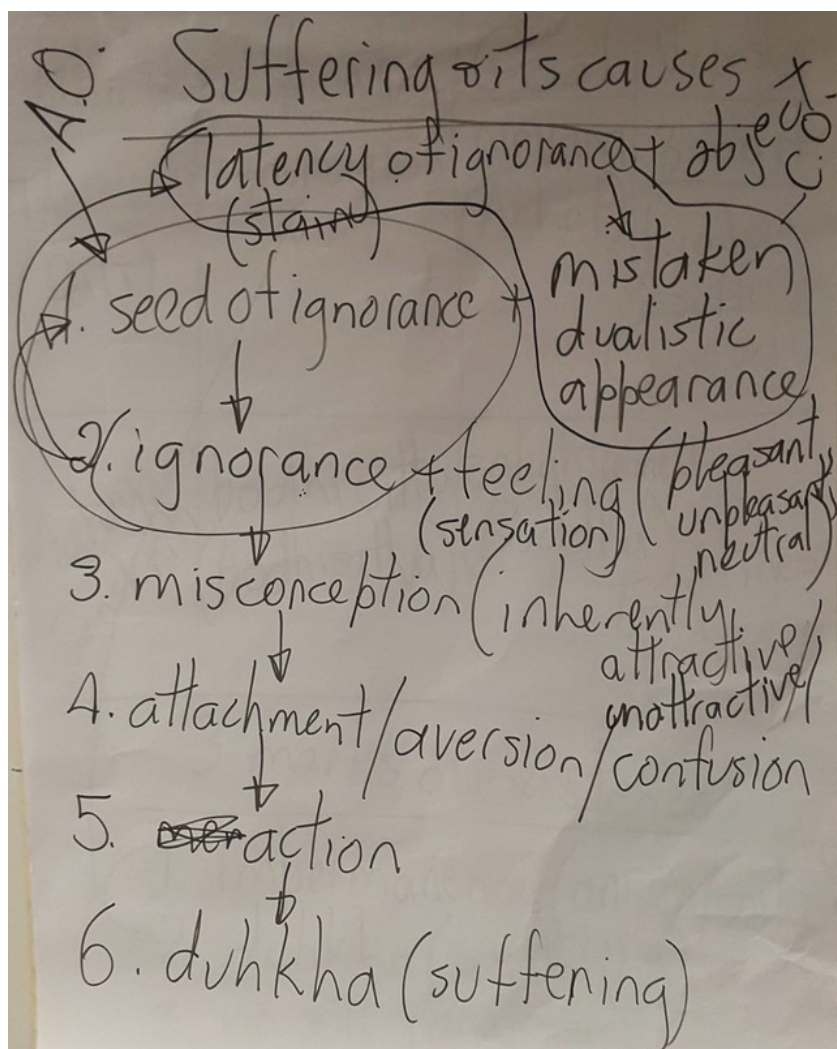 A.O. Suffering & its causes x
latency of ignorance + object
(stain)
mistaken
dualistic
appearance
1. seed of ignorance +
2. ignorance + feeling (pleasant,
(sensation) unpleasant,
neutral)
3. misconception (inherently
attractive/
unattractive/
4. attachment/aversion/confusion
5. action
6. duhkha (suffering)